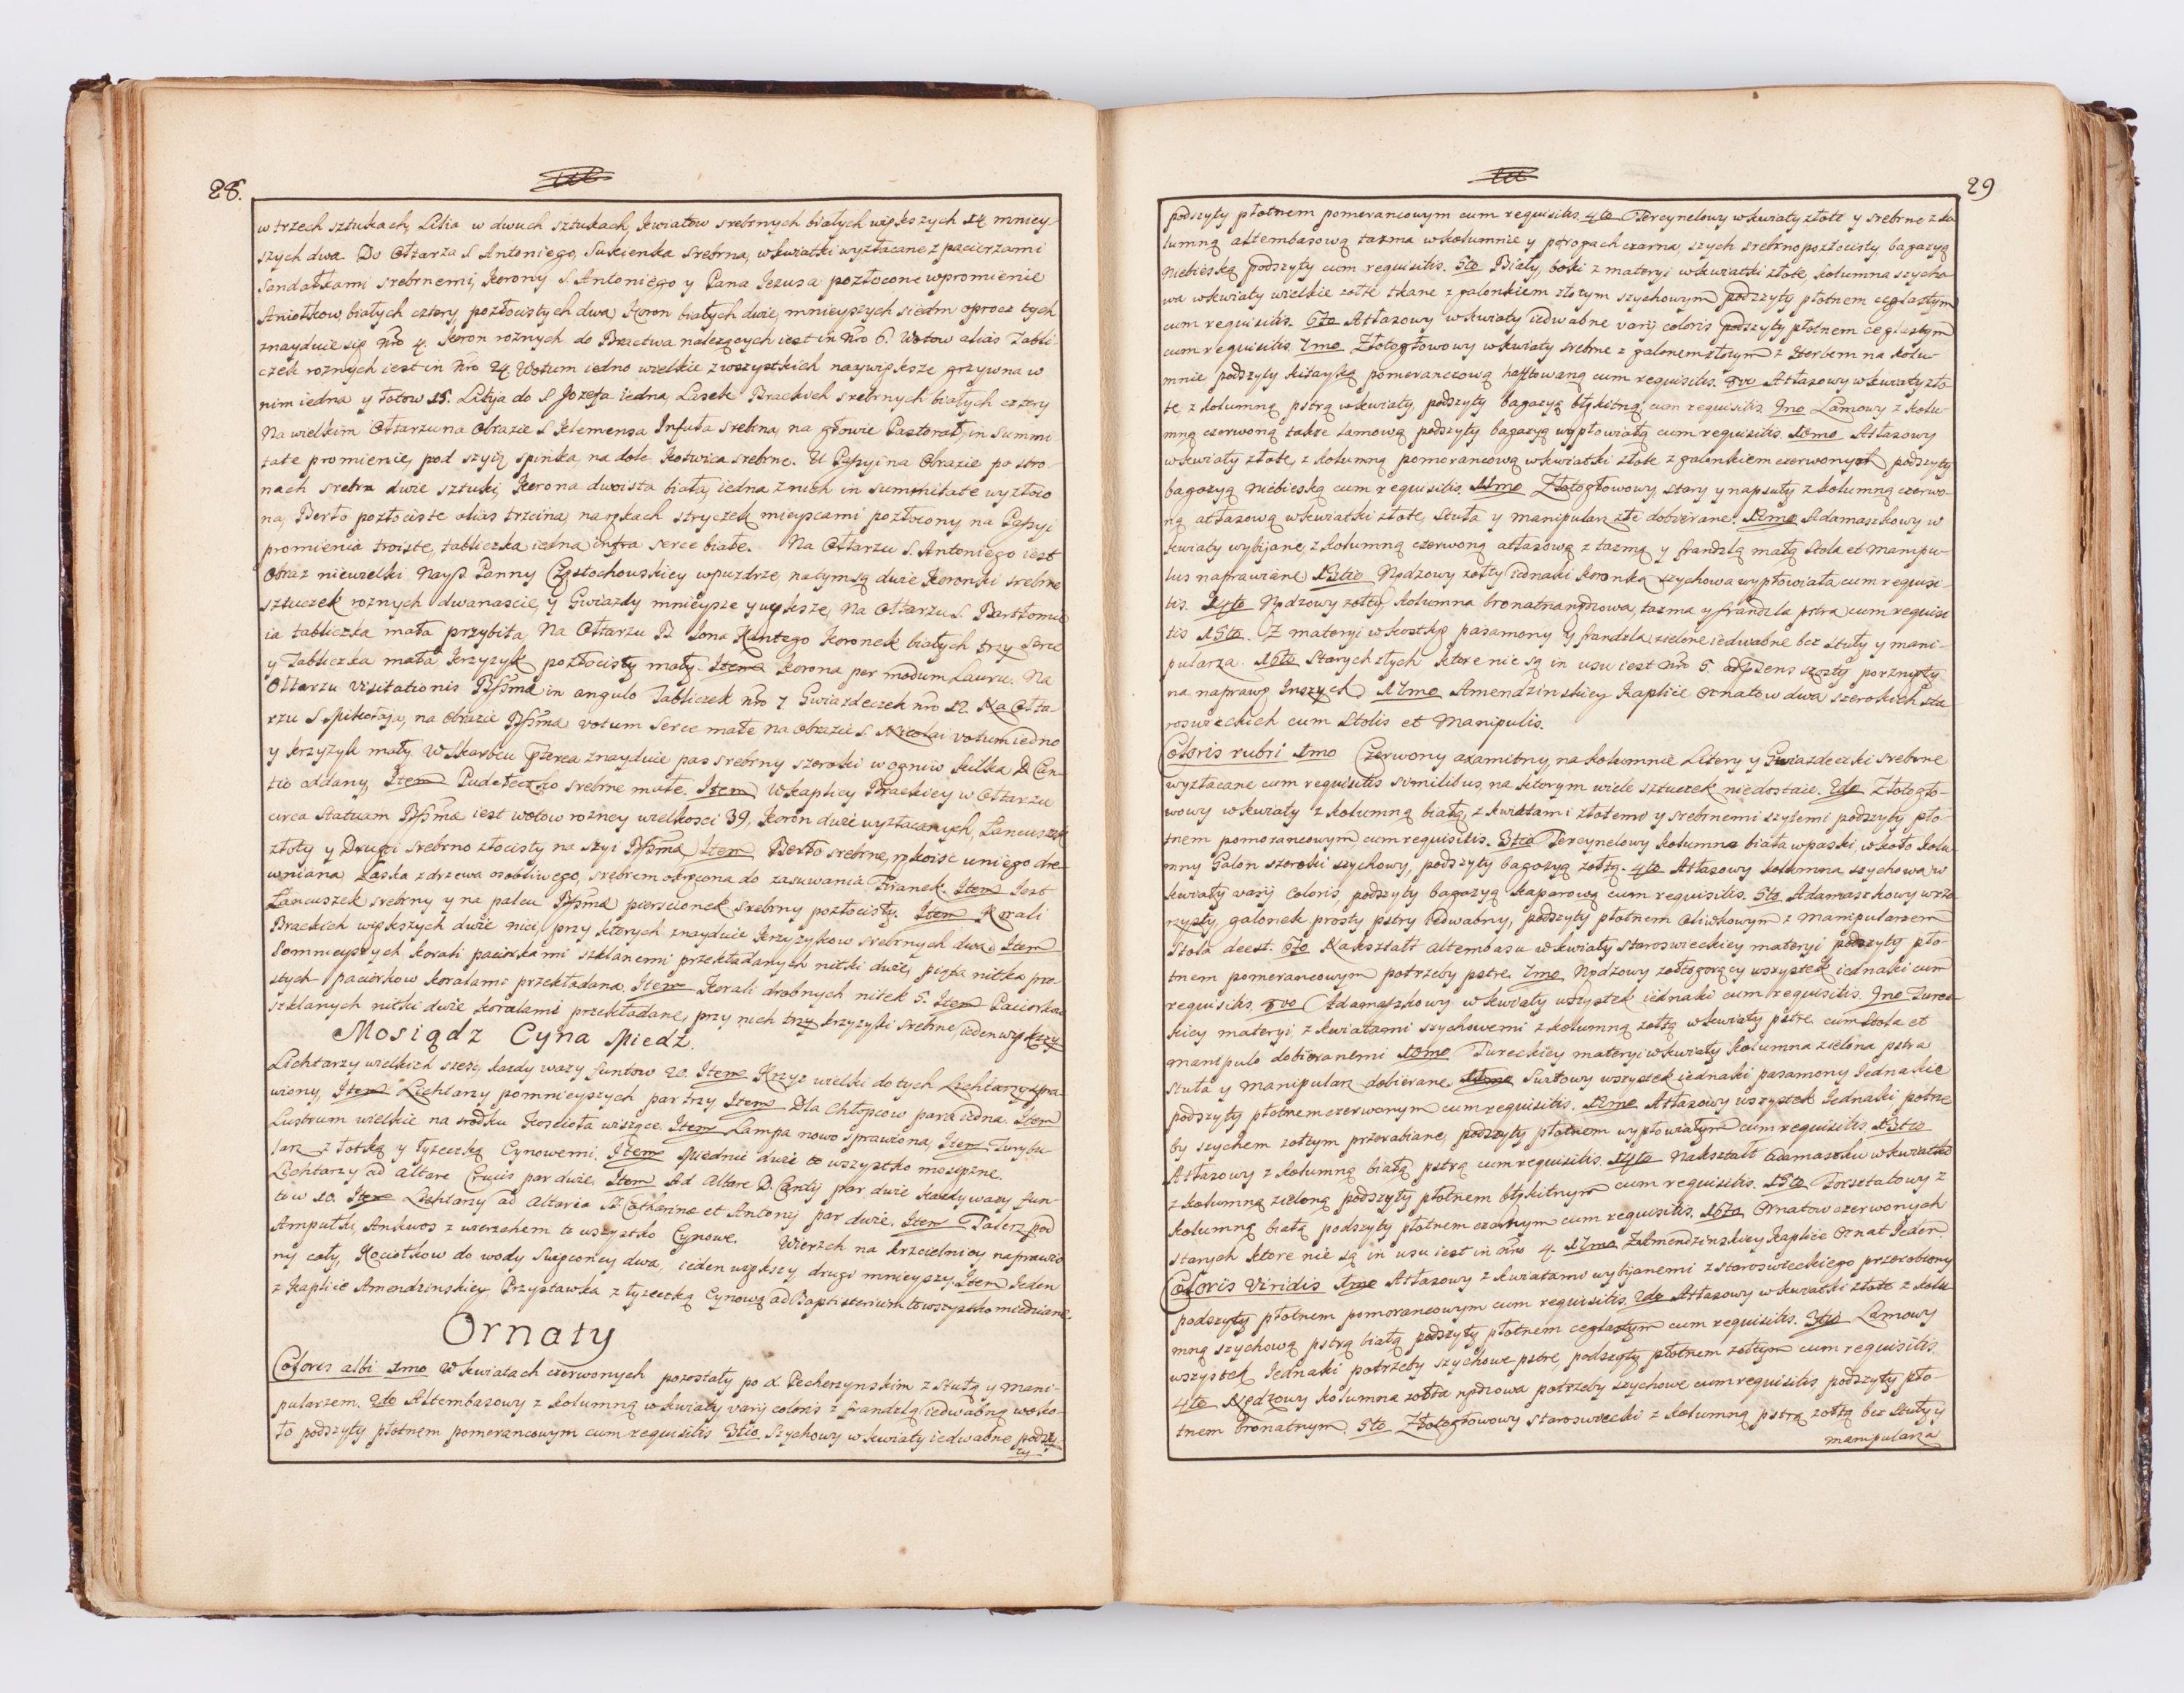 28.
w trzech sztukach, Lilia w dwuch sztukach, kwiatow srebrnych białych większych 14 mniey-
szych dwa. Do Ołtarza S. Antoniego, Sukienka Srebrna, w kwiatki wyzłacane z pacierzami
Sandałkami srebrnemi, korony S. Antoniego y Pana Jezusa pozłocone w promienie
Aniołkow, białych cztery, pozłocistych dwa, koron białych dwie, mnieyszych siedm oprocz tych
znayduie się Nro 4. koron roznych do Bractwa nalezących iest in Nro 6. Wotow alias Tabli-
czek roznych iest in Nro 24 Wotum iedno wielkie z wszystkich naywiększe grzywna w
nim iedna y łotow 15. Lilija do S Jozefa iedna, Lasek Brackich srebrnych białych cztery
Na wielkim Ołtarzu na Obrazie S Klemensa Infuła srebrna, na głowie Pastorał, in Summi-
tate promienie, pod szyią spinka, na dole kotwica srebrne. U Passyi na Obrazie po stro-
nach srebra dwie sztuki, korona dwoista biała, iedna z nich in summitate wyzłoco
na, Berło pozłociste alias trzcina, na rękach stryczek mieyscami pozłocony na Passyi
promienia troiste, tabliczka iedna infra serce białe. Na Ołtarzu S. Antoniego iest
Obraz niewielki Nayś Panny Częstochowskiey w puzdrze, na tym są dwie koronki srebrne
sztuczek roznych dwanascie, y Gwiazdy mnieysze y większe, Na Ołtarzu S. Bartłomie
ia tabliczka mała przybita, Na Ołtarzu B. Jona Kantego koronek białych trzy Serce
y Tabliczka mała, krzyzyk pozłocisty mały. Item korona per modum Lauru. Na
Ołtarzu Visitationis Bssmæ in angulo Tabliczek Nro 7 Gwiazdeczek Nro 12. Na Ołta-
rzu S Mikołaja, na Obrazie Bssmæ votum Serce małe na Obrazie S. Nicolai votum iedno
y krzyzyk mały. W Skarbcu pterea znayduie pas srebrny szeroki w ogniw kilka D. Can-
tio oddany, Item Pudełeczko srebrne małe. Item W kaplicy Brackiey w Ołtarzu
circa Statuam Bssmæ iest wotow rozney wielkosci 39, koron dwie wyzłacanych, Łancuszek
złoty y Drugi srebrno złocisty na szyi Bssmæ, Item Berło srebrne, rękoiść u niego dre-
wniana Laska z drzewa osobliwego, srebrem okręcona do zasuwania Firanek. Item Jest
Łancuszek srebrny y na palcu Bssmæ pierscionek srebrny pozłocisty. Item Korali
Brackich większych dwie nici, przy ktorych znayduie krzyzykow srebrnych dwa. Item
Somnieyszych korali paciorkami szklanemi przekładanych nitki dwie, piąta nitka pro-
stych paciorkow koralami przekładana. Item Korali drobnych nitek 5. Item Paciorkow
szklanych nitki dwie koralami przekładane, przy nich trzy krzyzyki srebrne, ieden większy
Mosiądz Cyna Miedź.
Lichtarzy wielkich szesc, kazdy wazy funtow 20. Item Krzyz wielki do tych Lichtarzy spra-
wiony, Item Lichtarzy pomnieyszych par trzy Item Dla Chłopcow para iedna. Item
Lustrum wielkie na srodku kosciola wiszące. Item Lampa nowo sprawiona, Item Turybu-
larz z łotką y łyzeczką Cynowemi. Item Miednic dwie to wszystko mosięzne.
Lichtarzy ad altare Crucis par dwie. Item Ad Altare D. Cantij par dwie kazdy wazy fun-
tow 10. Item Lichtarzy ad Altaria SS. Catharinæ et Antonij par dwie. Item Talerz pod
Ampułki, Ankwos z wierzchem to wszystko Cynowe. Wierzch na krzcielnicy naprawio
ny cały, Kociołkow do wody Swięconey dwa, ieden większy drugi mnieyszy Item Jeden
z Kaplice Amendzinskiey Przystawka z łyzeczką Cynową ad Baptisterium to wszystko miedziane.
Ornaty
Coloris albi 1mo W kwiatach czerwonych pozostały po X. Pecherzynskim z stułą y mani-
pularzem. 2do Altembasowy z kolumną w kwiaty varij coloris z frandzlą iedwabną woko-
ło podszyty płotnem pomerancowym cum requisitis 3tio Szychowy w kwiaty iedwabne podszy-
ty
29
podszyty płotnem pomerancowym cum requisitis. 4to Tercynelowy w kwiaty złote y srebrne z ko
lumną altembasową tazma w kolumnie y po rogach czarna, szych srebrnopozłocisty, bagazyą
Niebieską podszyty cum requisitis. 5to Biały, boki z materyi w kwiatki złote, kolumna szycho
wa w kwiaty wielkie zołte tkane z galonkiem złotym szychowym podszyty płotnem ceglastym
cum requisitis. 6to Atłasowy w kwiaty iedwabne varij coloris podszyty płotnem ceglastym
cum requisitis. 7mo Złotogłowowy w kwiaty srebrne z galonem złotym z Herbem na kolu-
mnie podszyty kitayką pomeranczową hafftowaną cum requisitis. 8vo Atłasowy w kwiaty zło-
te z kolumną pstrą w kwiaty, podszyty bagazyą błękitną cum requisitis. 9no Lamowy z kolu-
mną czerwoną takze lamową podszyty bagazyą wypłowiałą cum requisitis. 10mo Atłasowy
w kwiaty złote, z kolumną pomerancową w kwiatki złote z galonkiem czerwonym podszyty
bagazyą Niebieską cum requisitis. 11mo Złotogłowowy stary y napsuty z kolumną czerwo-
ną atłasową w kwiatki złote, Stuła y manipularz złe dobierane. 12mo Adamaszkowy w
kwiaty wybijane, z kolumną czerwoną atłasową z tazmą y frandzlą małą Stola et Manipu-
lus naprawiane. 13tio Rądzowy zołty iednaki koronką szychowa wypłowiała cum requisi-
tis. 14to Rądzowy zołty, kolumna bronatna rądzowa, tazma y frandzla pstra cum requisi
tis 15to. Z materyi w kostkę pasamony y frandzla zielone iedwabne bez stuły y mani-
pularza. 16to Starych złych ktore nie są in usu iest Nro 5. adpsens szosty porznięty
na naprawę Inszych. 17mo Amendzinskiey Kaplice ornatow dwa szerokich sta
roswieckich cum Stolis et Manipulis.
Coloris rubri 1mo Czerwony axamitny, na kolumnie Litery y Gwiazdeczki srebrne
wyzłacane cum requisitis similibus, na ktorym wiele sztuczek niedostaie. 2do Złotogło-
wowy w kwiaty z kolumną białą, z kwiatami złotemi y srebrnemi szytemi podszyty pło-
tnem pomerancowym cum requisitis. 3tio Tercynelowy kolumna biała w paski, w koło kolu
mny Galon szeroki szychowy, podszyty bagazyą zołtą. 4to Atłasowy kolumna szychowa w
kwiaty varij Coloris, podszyty bagazyą kaparową cum requisitis. 5to Adamaszkowy wrzo-
rzysty, galonek prosty pstry iedwabny, podszyty płotnem oliwkowym z manipularzem
Stola deest. 6to Nakształt altembasu w kwiaty staroswieckiey materyi podszyty pło-
tnem pomerancowym potrzeby pstre. 7mo Rądzowy zołtogorący wszystek iednaki cum
requisitis. 8vo Adamaszkowy w kwiaty wszystek iednaki cum requisitis. 9no Turec-
kiey materyi, z kwiatami szychowemi z kolumną zołtą w kwiaty pstre. cum Stola et
manipulo dobieranemi 10mo Tureckiey materyi w kwiaty kolumna zielona pstra
Stuła y Manipularz dobierane 11mo Suztowy wszystek iednaki pasamony Jednakie
podszyty płotnem czerwonym cum requisitis. 12mo Atłasowy wszystek Jednaki potrze
by szychem zołtym przerabiane, podszyty płotnem wypłowiałym cum requisitis. 13tio
Atłasowy z kolumną białą pstrą cum requisitis. 14to Nakształt adamaszku w kwiatki
z kolumną zieloną podszyty płotnem błękitnym cum requisitis. 15to Forsztatowy z
kolumną białą podszyty płotnem czarnym cum requisitis. 16to Ornatow czerwonych
starych ktore nie są in usu iest in Nro 4. 17mo Z Amendzinskiey Kaplice Ornat Jeden.
Coloris Viridis 1mo Atłasowy z kwiatami wybijanemi z staroswieckiego przerobiony
podszyty płotnem pomerancowym cum requisitis. 2do Atłasowy w kwiatki złote z kolu
mną szychową pstrą białą podszyty płotnem ceglastym cum requisitis. 3tio Lamowy
wszystek Jednaki potrzeby szychowe pstre, podszyty płotnem zołtym cum requisitis.
4to Rądzowy kolumna zołta rądzowa potrzeby szychowe cum requisitis podszyty pło-
tnem bronatnym. 5to Złotogłowowy staroswiecki z kolumną pstrą zołtą bez stuły y
manipularza